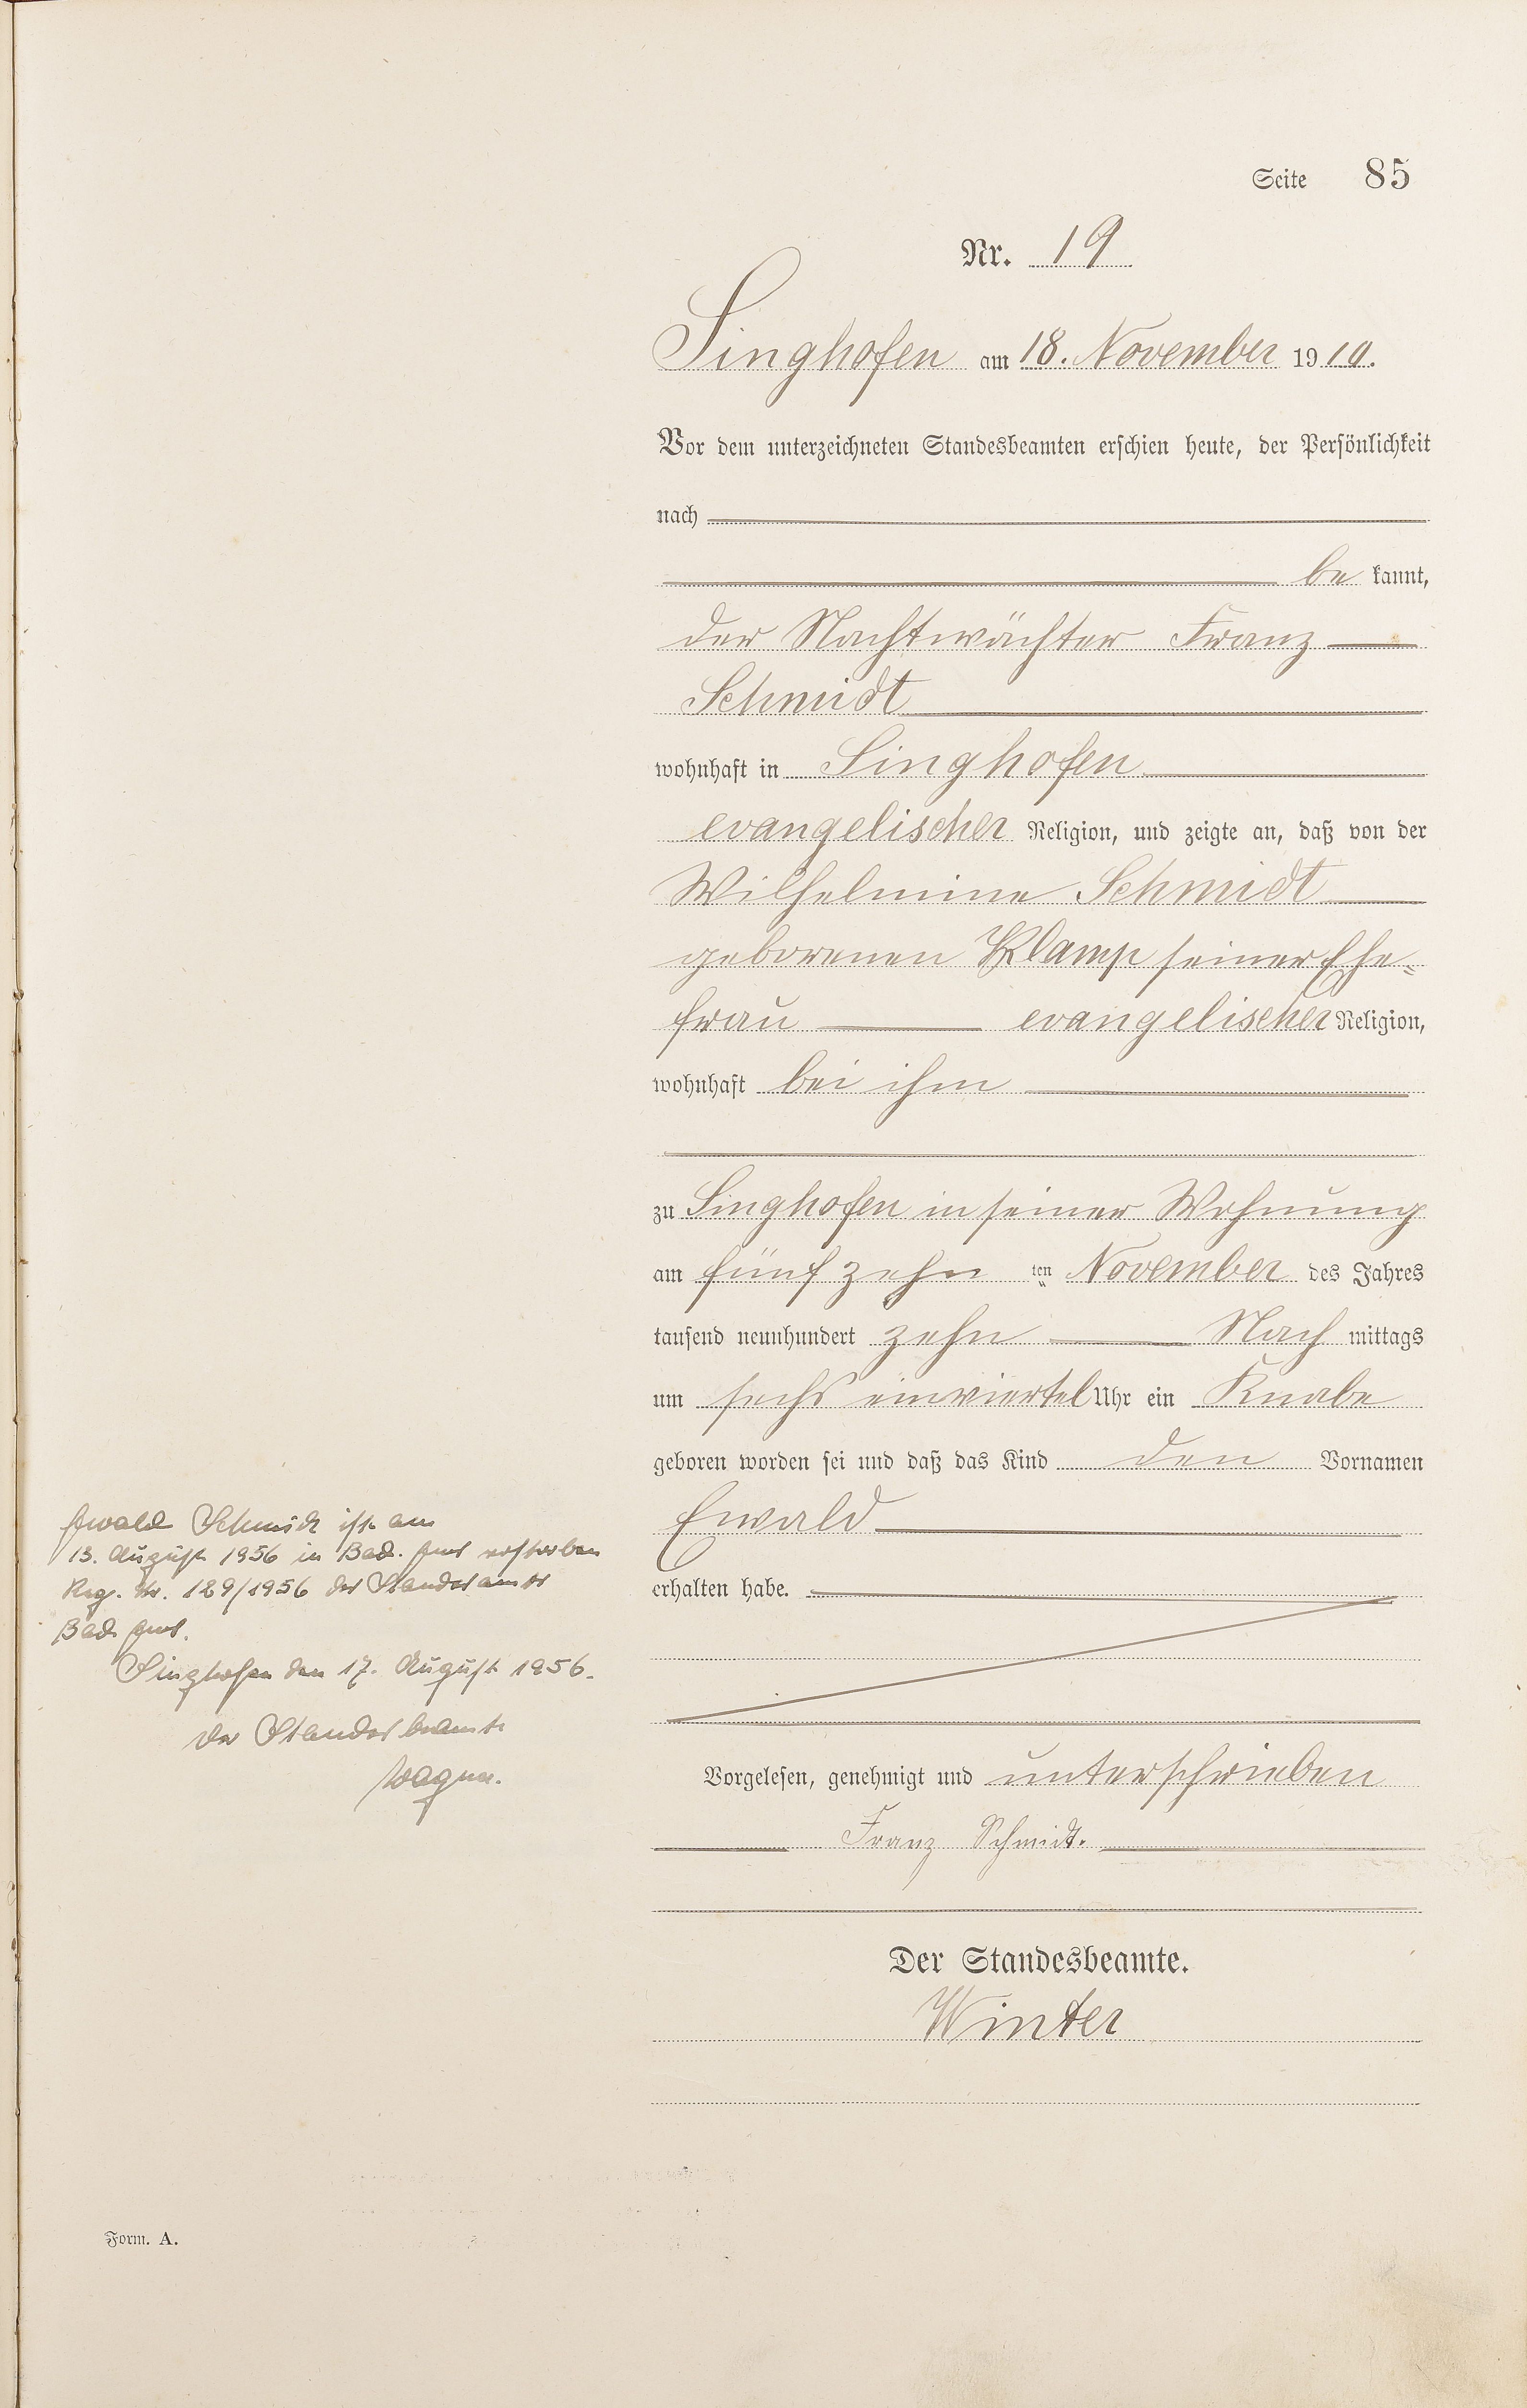 Seite 85
Nr. 19
Singhofen am 18. November 1910.
Vor dem unterzeichneten Standesbeamten erschien heute, der Persönlichkeit
nach
be kannt,
der Nachtwächter Franz
Schmidt
wohnhaft in Singhofen
evangelischer Religion, und zeigte an, daß von der
Wilhelmine Schmidt
geborenen Klamp seiner Ehe=
frau evangelischer Religion,
wohnhaft bei ihm
zu Singhofen in seiner Wohnung
am fünfzehn ten November des Jahres
tausend neunhundert zehn Nach mittags
um sechs einviertel Uhr ein Knabe
geboren worden sei und daß das Kind den Vornamen
Ewald
erhalten habe.
Vorgelesen, genehmigt und unterschrieben
Franz Schmidt.
Der Standesbeamte.
Winter
Ewald Schmidt ist am
13. August 1956 in Bad. Ems verstorben
Reg. Nr. 129/1956 des Standesamts
Bad Ems.
Singhofen den 17. August 1956.
Der Standesbeamte
Wagner.
Form. A.